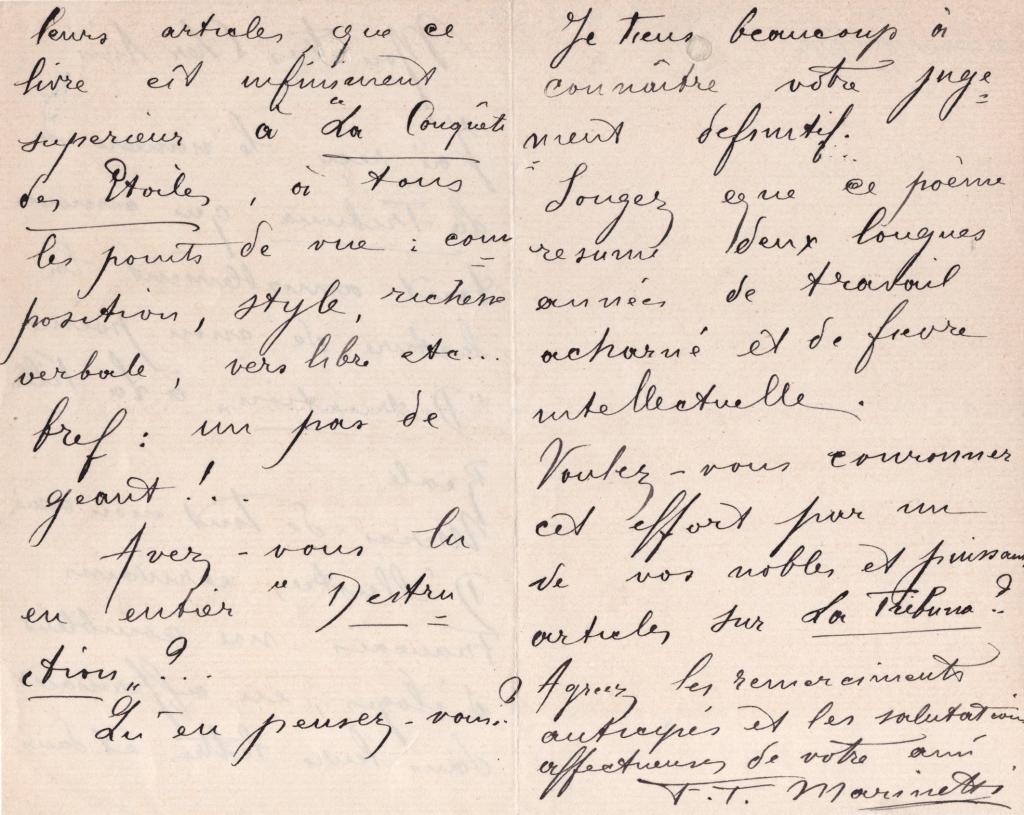 leurs articles, que ce
livre est infiniment
superieur à "La Conquête
des Etoiles, à tous
les points de vue : com
position, style, richesse
verbale, vers libre etc...
bref : un pas de
geant !...
Avez-vous lu
en entier "Destru
ction" ?...
Qu'en pensez-vous ?
Je tiens beaucoup à
connaître votre juge
ment definitif.
Songez que ce poème
resume deux longues
années de travail
acharné et de fievre
intellectuelle.
Voulez-vous couronner
cet effort par un
de vos nobles et puissants
articles sur La Tribuna ?
Agreez les remerciments
anticipés et les salutations
affectueuses de votre ami
F. T. Marinetti